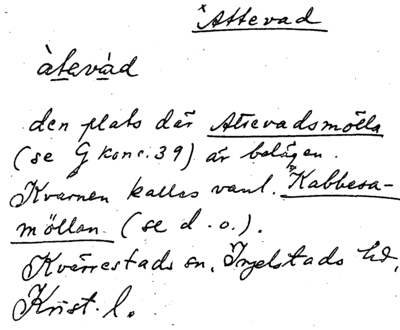 ×Attevad
àtevàd
den plats där Attevadsmölla
(se G konc. 39) är belägen.
Kvarnen kallas vanl. Kabbesa-
möllan (se d. o.).
Kverrestads sn. Ingelstads hd.
Krist. l.